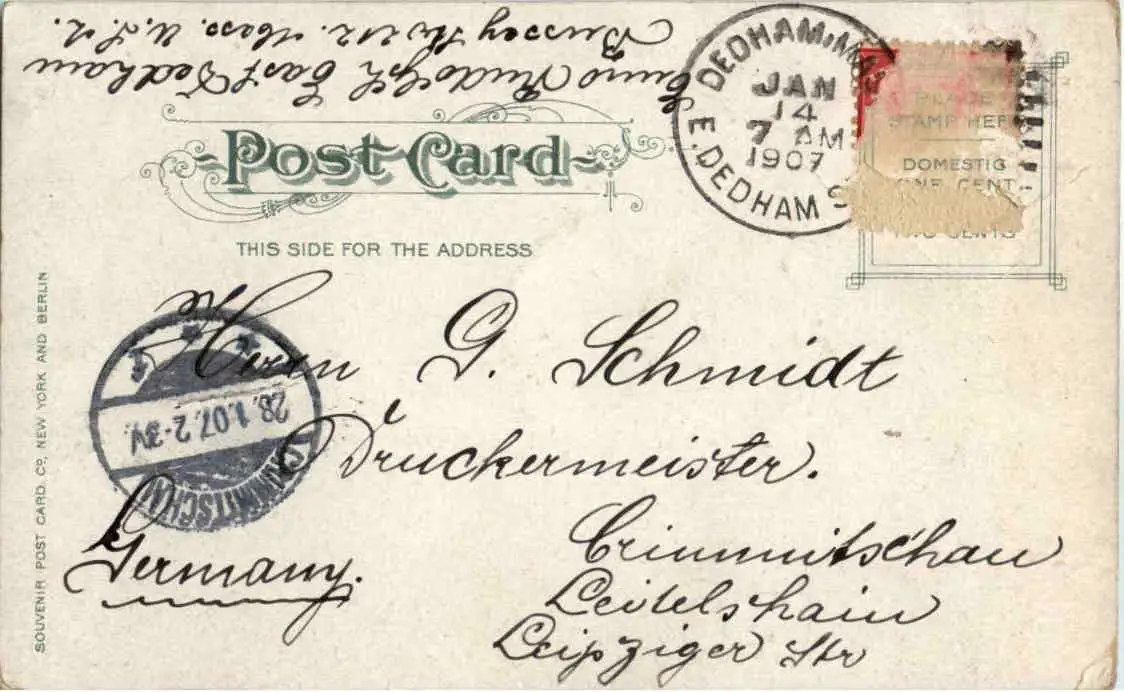 Bruno Rudolph East Dedham
Bussey Str 212. Mass. U.S.A.
DEDHAM, MASS.
JAN
14
7 AM
1907
E. DEDHAM S
PLACE
STAMP HERE
DOMESTIC
ONE CENT
TWO CENTS
Post Card
THIS SIDE FOR THE ADDRESS
Herrn G. Schmidt
Druckermeister.
Crimmitschau
Leitelshain
Leipziger Str
Germany.
28.1.07.2-3N.
CRIMMITSCHAU
SOUVENIR POST CARD CO, NEW YORK AND BERLIN